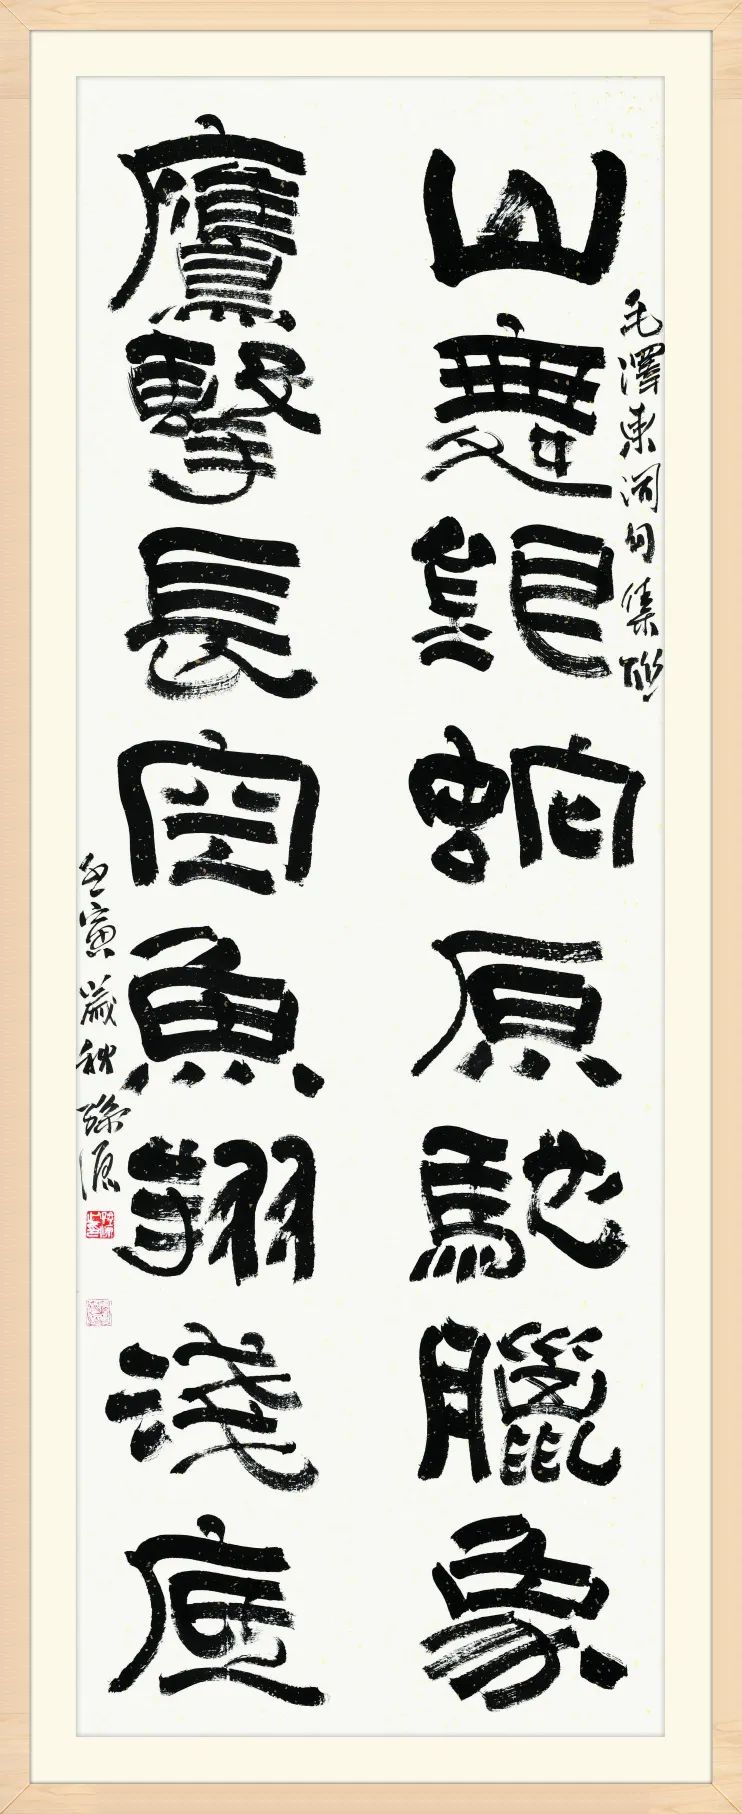 毛澤東詞句集聯
山舞銀蛇原馳臘象
鷹擊長空魚翔淺底
壬寅歲秋